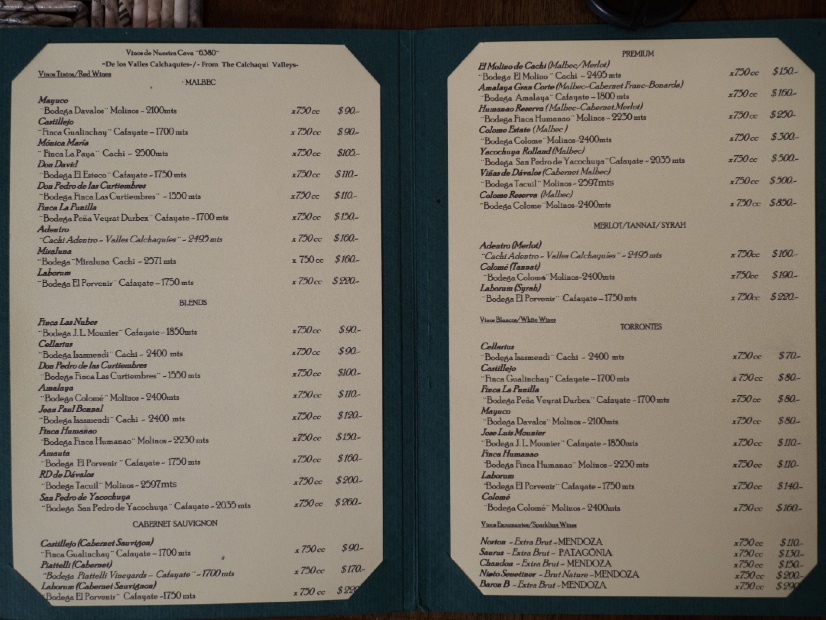 Vinos de Nuestra Cava "6380"
-De los Valles Calchaquíes-/- From The Calchaquí Valleys-
Vinos Tintos/Red Wines
MALBEC
Mayuco
"Bodega Davalos" Molinos - 2100mts x750cc $ 90.-
Castillejo
"Finca Gualinchay" Cafayate - 1700 mts x 750cc $ 90.-
Mónica María
" Finca La Paya" Cachi - 2500mts x 750cc $105.-
Don David
"Bodega El Esteco" Cafayate - 1750 mts x 750 cc $ 110.-
Don Pedro de las Curtiembres
"Bodega Finca Las Curtiembres" - 1550 mts x 750cc $ 110.-
Finca La Punilla
"Bodega Peña Veyrat Durbex" Cafayate - 1700 mts x 750 cc $ 150.-
Adentro
"Cachi Adentro - Valles Calchaquíes" - 2495 mts x 750 cc $ 160.-
Miraluna
"Bodega "Miraluna Cachi - 2571 mts x 750 cc $ 160.-
Laborum
"Bodega El Porvenir" Cafayate - 1750 mts x 750cc $ 220.-
BLENDS
Finca Las Nubes
"Bodega J.L. Mounier" Cafayate - 1850mts x750cc $ 90.-
Cellarius
"Bodega Isasmendi" Cachi - 2400 mts x750cc $ 90.-
Don Pedro de las Curtiembres
"Bodega Finca Las Curtiembres" - 1550 mts x750cc $100.-
Amalaya
"Bodega Colomé" Molinos - 2400mts x750cc $ 110.-
Jean Paul Bonnal
"Bodega Isasmendi" Cachi - 2400 mts x750cc $ 120.-
Finca Humanao
"Bodega Finca Humanao" Molinos - 2230 mts x750cc $ 150.-
Amauta
"Bodega El Porvenir" Cafayate - 1750 mts x750cc $ 160.-
RD de Dávalos
"Bodega Tacuil" Molinos - 2597mts x750cc $ 200.-
San Pedro de Yacochuya
"Bodega San Pedro de Yacochuya" Cafayate - 2035 mts x750cc $ 260.-
CABERNET SAUVIGNON
Castillejo (Cabernet Sauvignon)
"Finca Gualinchay" Cafayate - 1700 mts x 750cc $ 90.-
Piattelli (Cabernet)
"Bodega Piattelli Vineyards - Cafayate" - 1700mts x 750cc $ 170.-
Laborum (Cabernet Sauvignon)
"Bodega El Porvenir" Cafayate - 1750 mts x 750 cc
PREMIUM
El Molino de Cachi (Malbec/Merlot)
"Bodega El Molino" Cachi - 2495 mts x750cc $ 150.-
Amalaya Gran Corte (Malbec-Cabernet Franc-Bonarda)
"Bodega Amalaya" Cafayate - 1800 mts x750cc $ 160.-
Humanao Reserva (Malbec-Cabernet Merlot)
"Bodega Finca Humanao" Molinos - 2230 mts x 750cc $ 250.-
Colome Estate (Malbec)
"Bodega Colome" Molinos-2400mts x 750cc $ 300.-
Yacochuya Rolland (Malbec)
"Bodega San Pedro de Yacochuya" Cafayate - 2035 mts x 750cc $ 500.-
Viñas de Dávalos (Cabernet Malbec)
"Bodega Tacuil" Molinos - 2597mts x 750cc $ 500.-
Colome Reserva (Malbec)
"Bodega Colome" Molinos-2400mts x 750cc $ 850.-
MERLOT/TANNAT/ SYRAH
Adentro (Merlot)
"Cachi Adentro - Valles Calchaquíes" - 2495 mts x750cc $ 160.-
Colomé (Tannat)
"Bodega Colome" Molinos-2400mts x750cc $ 190.-
Laborum (Syrah)
"Bodega El Porvenir" Cafayate - 1750 mts x 750cc $ 220.-
Vinos Blancos/White Wines
TORRONTES
Cellarius
"Bodega Isasmendi" Cachi - 2400 mts x750cc $ 70.-
Castillejo
"Finca Gualinchay" Cafayate - 1700 mts x750cc $ 80.-
Finca La Punilla
"Bodega Peña Veyrat Durbex" Cafayate - 1700 mts x750cc $ 80.-
Mayuco
"Bodega Davalos" Molinos - 2100mts x750cc $ 80.-
Jose Luis Mounier
"Bodega J. L. Mounier" Cafayate - 1850mts x750cc $ 110.-
Finca Humanao
"Bodega Finca Humanao" Molinos - 2230 mts x750cc $ 110.-
Laborum
"Bodega El Porvenir" Cafayate - 1750 mts x750cc $ 140.-
Colomé
"Bodega Colomé" Molinos - 2400mts x750cc $ 160.-
Vinos Espumantes/Sparkling Wines
Norton - Extra Brut - MENDOZA x750 cc $ 110.-
Saurus - Extra Brut - PATAGONIA x750cc $ 130.-
Chandon - Extra Brut - MENDOZA x750cc $ 150.-
Nieto Senetiner - Brut Nature - MENDOZA x750cc $ 200.-
Baron B - Extra Brut - MENDOZA x750cc